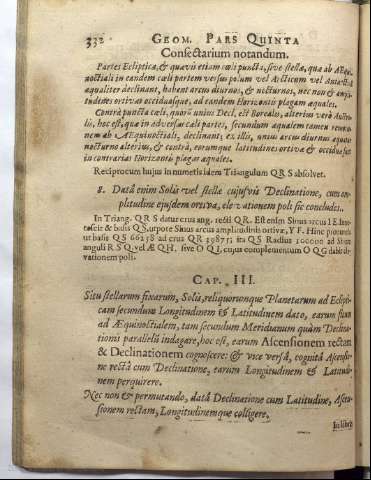 332 GEOM. PARS QUINTA
Consectarium notandum.
Partes Eclipticæ, & quævis etiam cœli puncta, sive stellæ, quæ ab Æqui-
noctiali in eandem cœli partem versus polum vel Arcticum vel Antarcticum
æqualiter declinant, habent arcus diurnos, & nocturnos, nec non & ampli-
tudines ortivas occiduasque, ad eandem Horizontis plagam æquales.
Contrà puncta cœli, quorū unius Decl. est Borealis, alterius verò Austra-
lis, hoc est, quæ in adversas cœli partes, secundum æqualem tamen
ab Æquinoctiali, declinant, ex illis, unius arcus diurnus æquatur
nocturno alterius, & contrà, eorumque latitudines ortivæ & occiduæ sunt
in contrarias Horizontis plagas æquales.
Reciprocum hujus in numeris idem Triangulum QRS absolvet.
8. Datâ enim Solis vel stellæ cujusvis Declinatione, cum am-
plitudine ejusdem ortiva, elevationem poli sic concludes.
In Triang. QRS datur crus ang. recti QR. Est enim Sinus arcus IE
& basis QS, utpote Sinus arcus amplitudinis ortivæ, YF. Hinc
ut basis QS 66238 ad crus QR 19875; ita QS Radius 100000 ad Sinū
anguli RSQ, vel ÆQH, sive OQI, cujus complementum OQG dabit
vationem poli.
CAP. III.
Situ stellarum fixarum, Solis, reliquorumque Planetarum ad Eclipti-
cam secundum Longitudinem & Latitudinem dato, earum situm
ad Æquinoctialem, tam secundum Meridianum quàm Declina-
tionis parallelū indagare, hoc est, earum Ascensionem rectam
& Declinationem cognoscere: & vice versâ, cognitâ Ascensio-
ne rectâ cum Declinatione, earum Longitudinem & Latitudi-
nem perquirere.
Nec non & permutando, datâ Declinatione cum Latitudine, Ascen-
sionem rectam, Longitudinemque colligere.
In libris